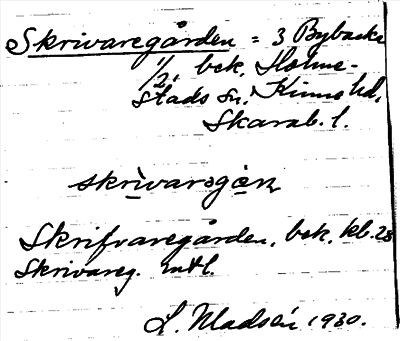 Skrivaregården = 3 Bybacka
1/2, bek. Holme-
stads sn. Kinne hd,
Skarab. l.
skrìvarəgɑ̀ɳ
Skrifvaregården, bek. kb. 28
Skrivareg. mtl.
L. Madsén 1930.